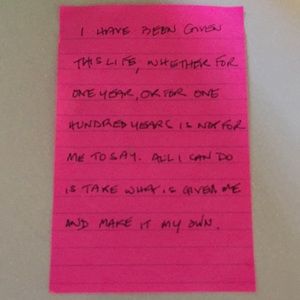 I HAVE BEEN GIVEN
THIS LIFE, WHETHER FOR
ONE YEAR, OR FOR ONE
HUNDRED YEARS IS NOT FOR
ME TO SAY. ALL I CAN DO
IS TAKE WHAT IS GIVEN ME
AND MAKE IT MY OWN.